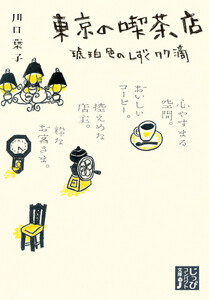 東京の喫茶店
琥珀色のしずく77滴
川口葉子
心やすまる
空間。
おいしい
コーヒー。
控えめな
店主。
粋な
お客さま。
じっぴ
コンパクト
文庫